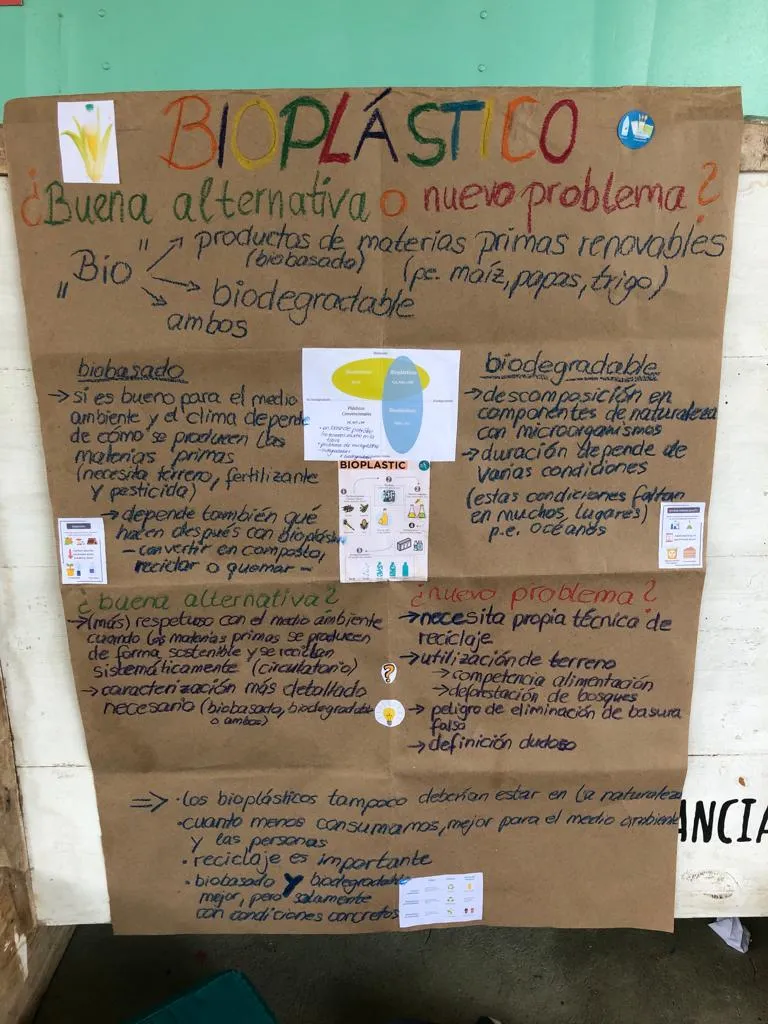 BIOPLÁSTICO
¿Buena alternativa o nuevo problema?
"Bio"
productos de materias primas renovables
(biobasado) (pe. maíz, papas, trigo)
biodegradable
ambos
biobasado
→ si es bueno para el medio
ambiente y el clima depende
de cómo se producen las
materias primas
(necesita terreno, fertilizante
y pesticida)
→ depende también qué
hacen después con bioplástico
- convertir en composto,
reciclar o quemar -
Plásticos
Convencionales
BIOPLASTIC
biodegradable
→ descomposición en
componentes de naturaleza
con microorganismos
→ duración depende de
varias condiciones
(estas condiciones faltan
en muchos lugares)
p.e. océanos
¿buena alternativa?
→ (más) respetuso con el medio ambiente
cuando las materias primas se producen
de forma sostenible y se reciclan
sistemáticamente (circulatorio)
→ caracterización más detallado
necesario (biobasado, biodegradable
o ambos)
¿nuevo problema?
→ necesita propia técnica de
reciclaje
→ utilización de terreno
→ competencia alimentación
→ deforestación de bosques
→ peligro de eliminación de basura
falsa
→ definición dudoso
?
⇒ · los bioplásticos tampoco deberían estar en la naturaleza
· cuanto menos consumamos, mejor para el medio ambiente
y las personas
· reciclaje es importante
· biobasado y biodegradable
mejor, pero solamente
con condiciones concretos
ANCIA